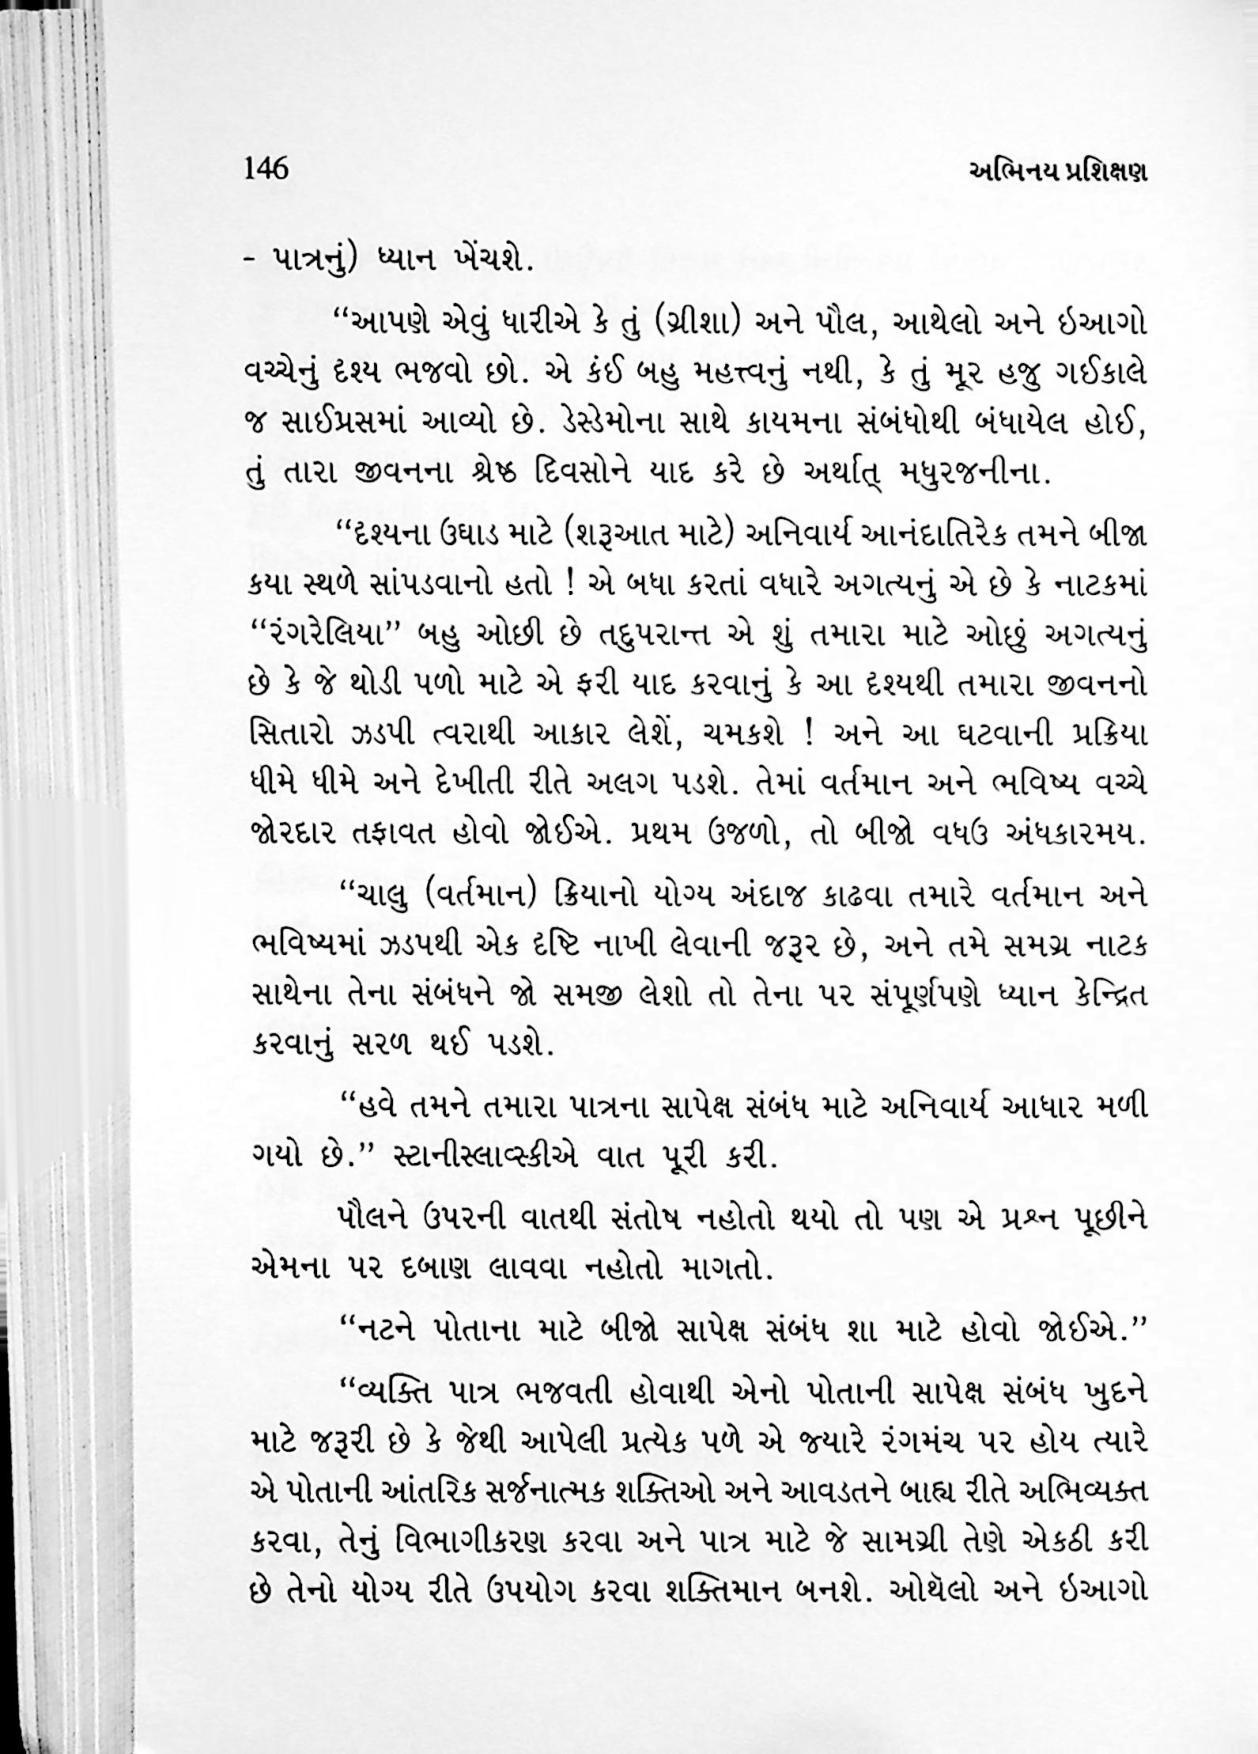 146
અભિનય પ્રશિક્ષણ
- પાત્રનું) ધ્યાન ખેંચશે.
“આપણે એવું ધારીએ કે તું (ગ્રીશા) અને પૌલ, આથેલો અને ઇઆગો
વચ્ચેનું દૃશ્ય ભજવો છો. એ કંઈ બહુ મહત્ત્વનું નથી, કે તું મૂર હજુ ગઈકાલે
જ સાઈપ્રસમાં આવ્યો છે. ડેસ્ડેમોના સાથે કાયમના સંબંધોથી બંધાયેલ હોઈ,
તું તારા જીવનના શ્રેષ્ઠ દિવસોને યાદ કરે છે અર્થાત્ મધુરજનીના.
“દૃશ્યના ઉઘાડ માટે (શરૂઆત માટે) અનિવાર્ય આનંદાતિરેક તમને બીજા
કયા સ્થળે સાંપડવાનો હતો ! એ બધા કરતાં વધારે અગત્યનું એ છે કે નાટકમાં
“રંગરેલિયા” બહુ ઓછી છે તદુપરાન્ત એ શું તમારા માટે ઓછું અગત્યનું
છે કે જે થોડી પળો માટે એ ફરી યાદ કરવાનું કે આ દૃશ્યથી તમારા જીવનનો
સિતારો ઝડપી ત્વરાથી આકાર લેશેં, ચમકશે ! અને આ ઘટવાની પ્રક્રિયા
ધીમે ધીમે અને દેખીતી રીતે અલગ પડશે. તેમાં વર્તમાન અને ભવિષ્ય વચ્ચે
જોરદાર તફાવત હોવો જોઈએ. પ્રથમ ઉજળો, તો બીજો વધઉ અંધકારમય.
“ચાલુ (વર્તમાન) ક્રિયાનો યોગ્ય અંદાજ કાઢવા તમારે વર્તમાન અને
ભવિષ્યમાં ઝડપથી એક દૃષ્ટિ નાખી લેવાની જરૂર છે, અને તમે સમગ્ર નાટક
સાથેના તેના સંબંધને જો સમજી લેશો તો તેના પર સંપૂર્ણપણે ધ્યાન કેન્દ્રિત
કરવાનું સરળ થઈ પડશે.
“હવે તમને તમારા પાત્રના સાપેક્ષ સંબંધ માટે અનિવાર્ય આધાર મળી
ગયો છે.” સ્ટાનીસ્લાવ્સ્કીએ વાત પૂરી કરી.
પૌલને ઉપરની વાતથી સંતોષ નહોતો થયો તો પણ એ પ્રશ્ન પૂછીને
એમના પર દબાણ લાવવા નહોતો માગતો.
“નટને પોતાના માટે બીજો સાપેક્ષ સંબંધ શા માટે હોવો જોઈએ.”
“વ્યક્તિ પાત્ર ભજવતી હોવાથી એનો પોતાની સાપેક્ષ સંબંધ ખુદને
માટે જરૂરી છે કે જેથી આપેલી પ્રત્યેક પળે એ જ્યારે રંગમંચ પર હોય ત્યારે
એ પોતાની આંતરિક સર્જનાત્મક શક્તિઓ અને આવડતને બાહ્ય રીતે અભિવ્યક્ત
કરવા, તેનું વિભાગીકરણ કરવા અને પાત્ર માટે જે સામગ્રી તેણે એકઠી કરી
છે તેનો યોગ્ય રીતે ઉપયોગ કરવા શક્તિમાન બનશે. ઓથેલો અને ઇઆગો